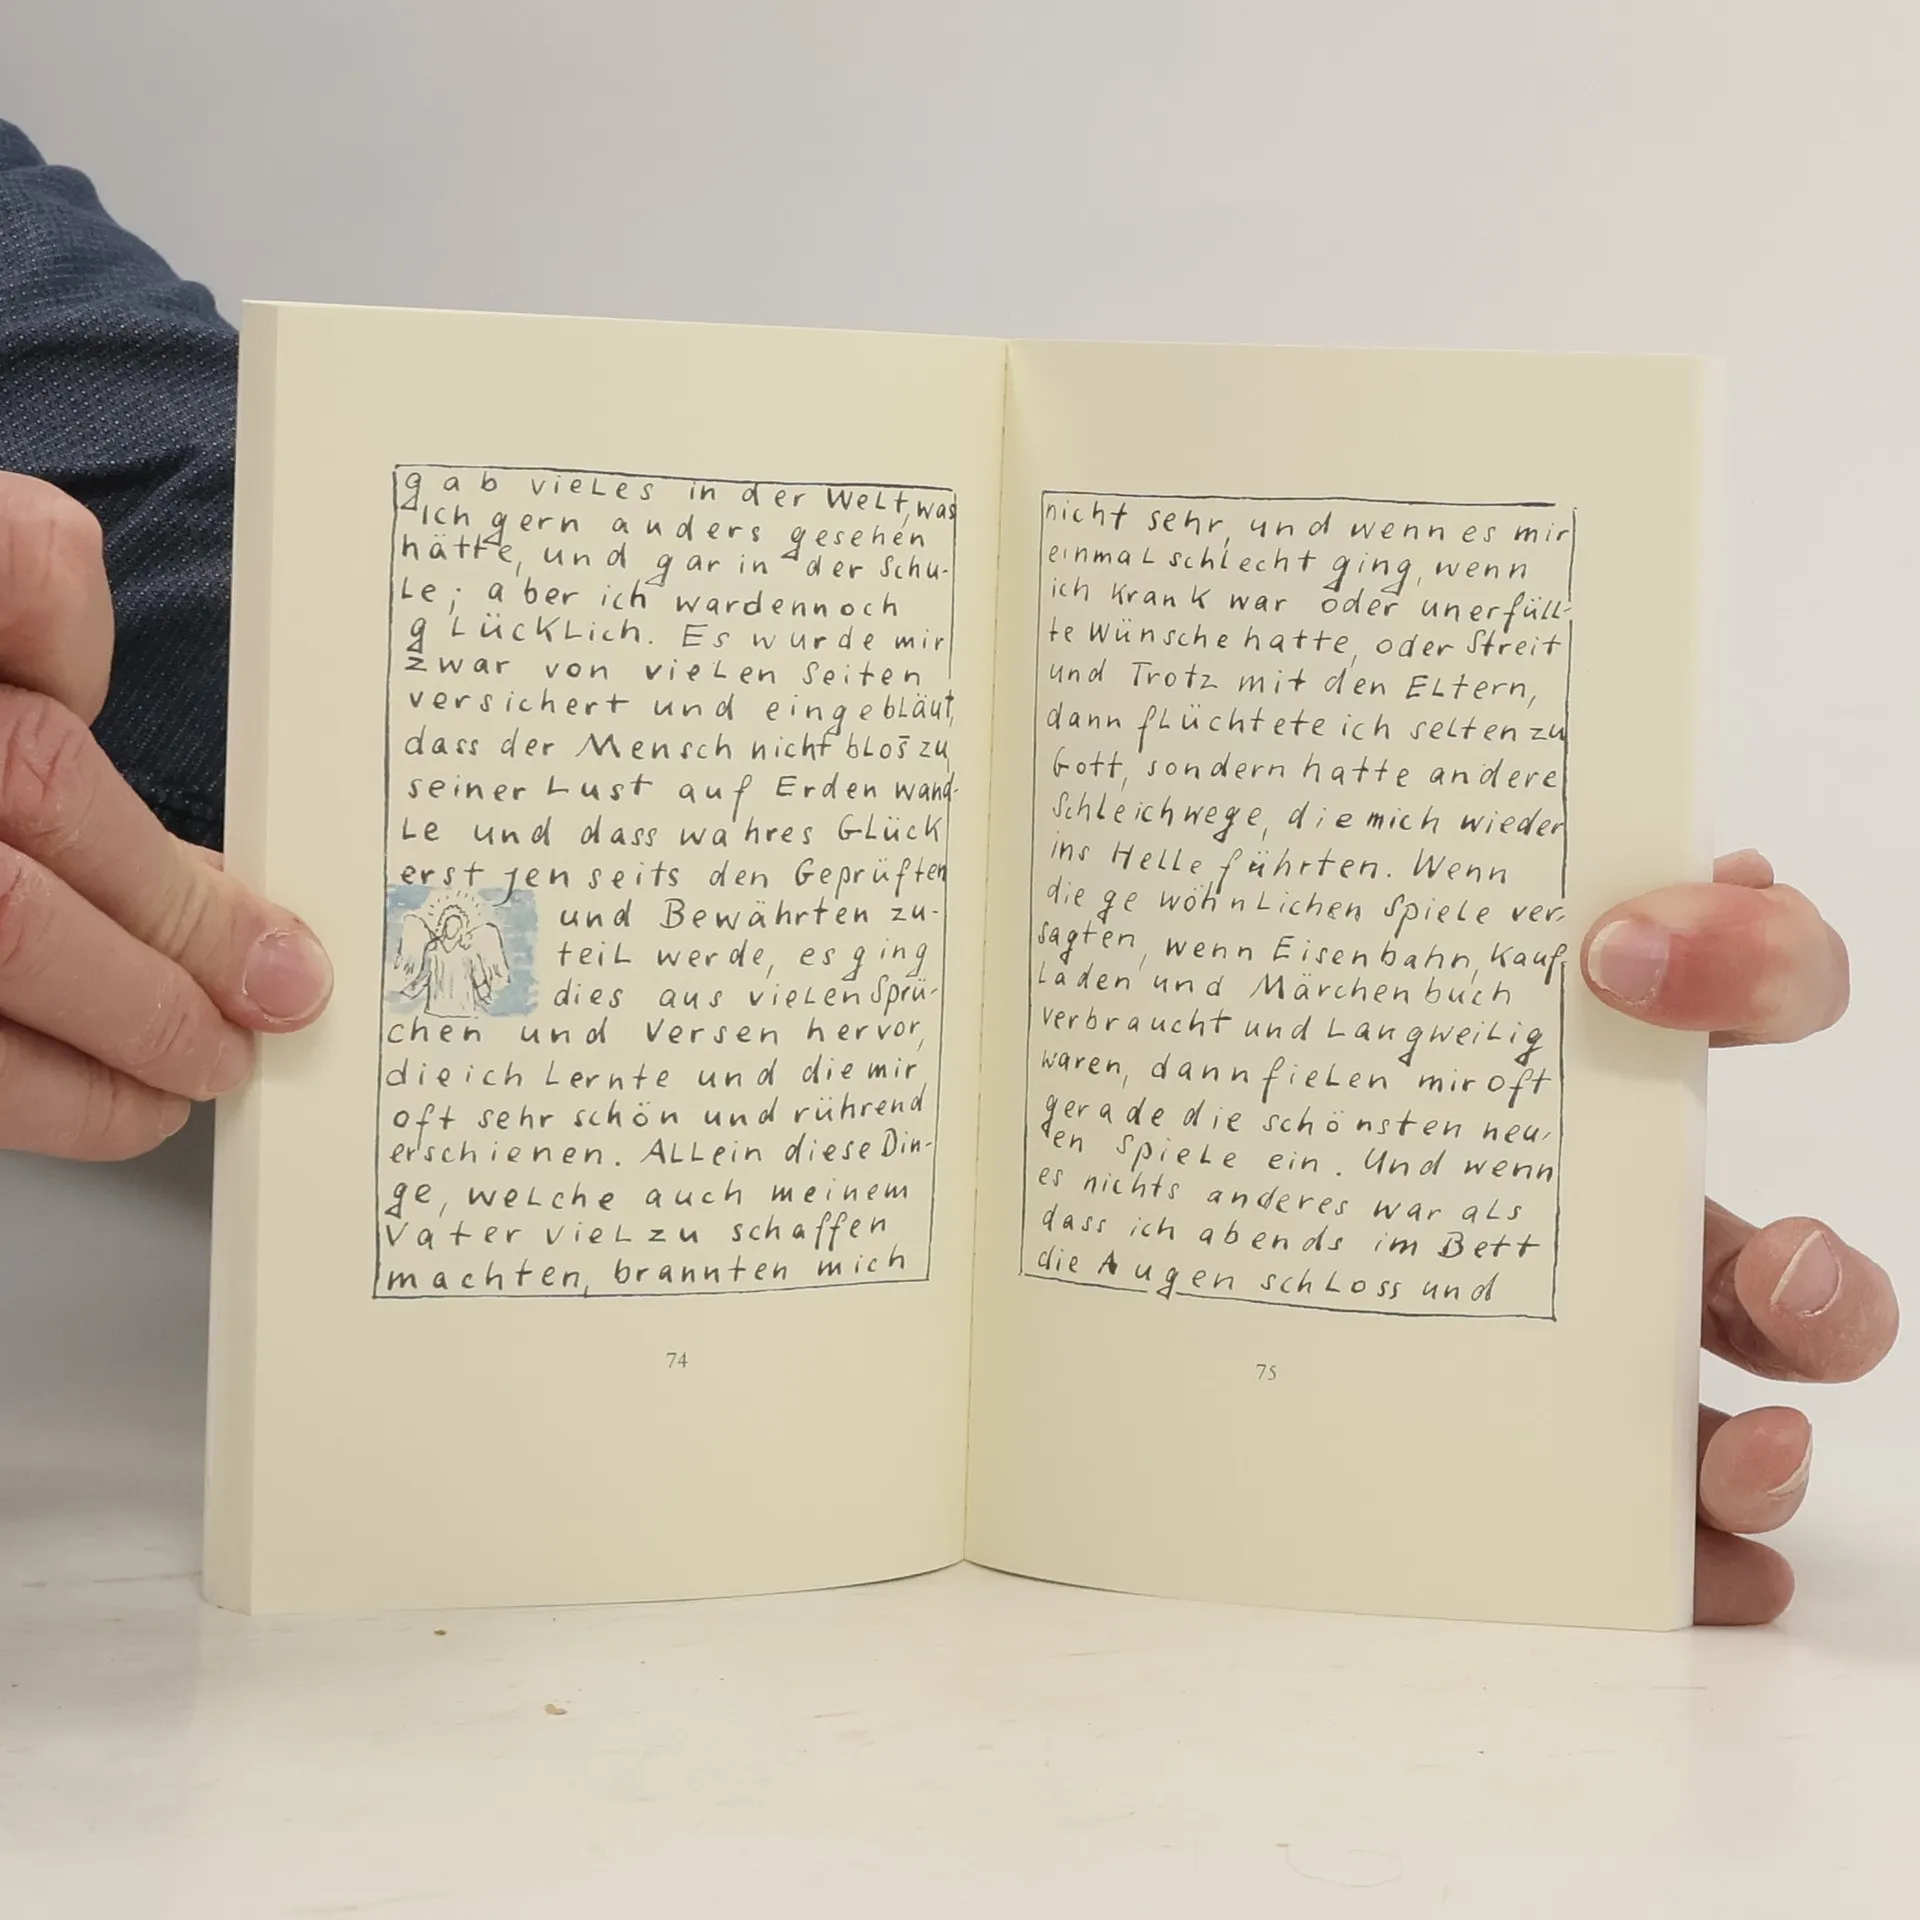 gab vieles in der Welt, was
ich gern anders gesehen
hätte, und gar in der Schu-
le; aber ich war dennoch
glücklich. Es wurde mir
zwar von vielen Seiten
versichert und eingebläut,
dass der Mensch nicht blos zu
seiner Lust auf Erden wand-
le und dass wahres Glück
erst jenseits den Geprüften
und Bewährten zu-
teil werde, es ging
dies aus vielen Sprü-
chen und Versen hervor,
die ich lernte und die mir
oft sehr schön und rührend
erschienen. Allein diese Din-
ge, welche auch meinem
Vater viel zu schaffen
machten, brannten mich
74
nicht sehr, und wenn es mir
einmal schlecht ging, wenn
ich krank war oder unerfüll-
te Wünsche hatte, oder Streit
und Trotz mit den Eltern,
dann flüchtete ich selten zu
Gott, sondern hatte andere
Schleichwege, die mich wieder
ins Helle führten. Wenn
die gewöhnlichen Spiele ver-
sagten, wenn Eisenbahn, Kauf-
laden und Märchenbuch
verbraucht und langweilig
waren, dann fielen mir oft
gerade die schönsten neu-
en Spiele ein. Und wenn
es nichts anderes war als
dass ich abends im Bett
die Augen schloss und
75